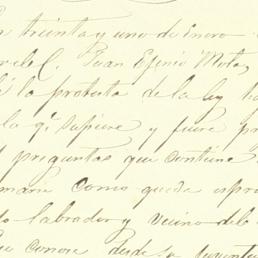 n treinta y uno de Enero
Juan Efenio Mota,
la protesta de la ley ha
lo qe. supiere y fuere pre
y preguntas que contiene
maria como queda espre
labrador y vecino del
conoce desde la